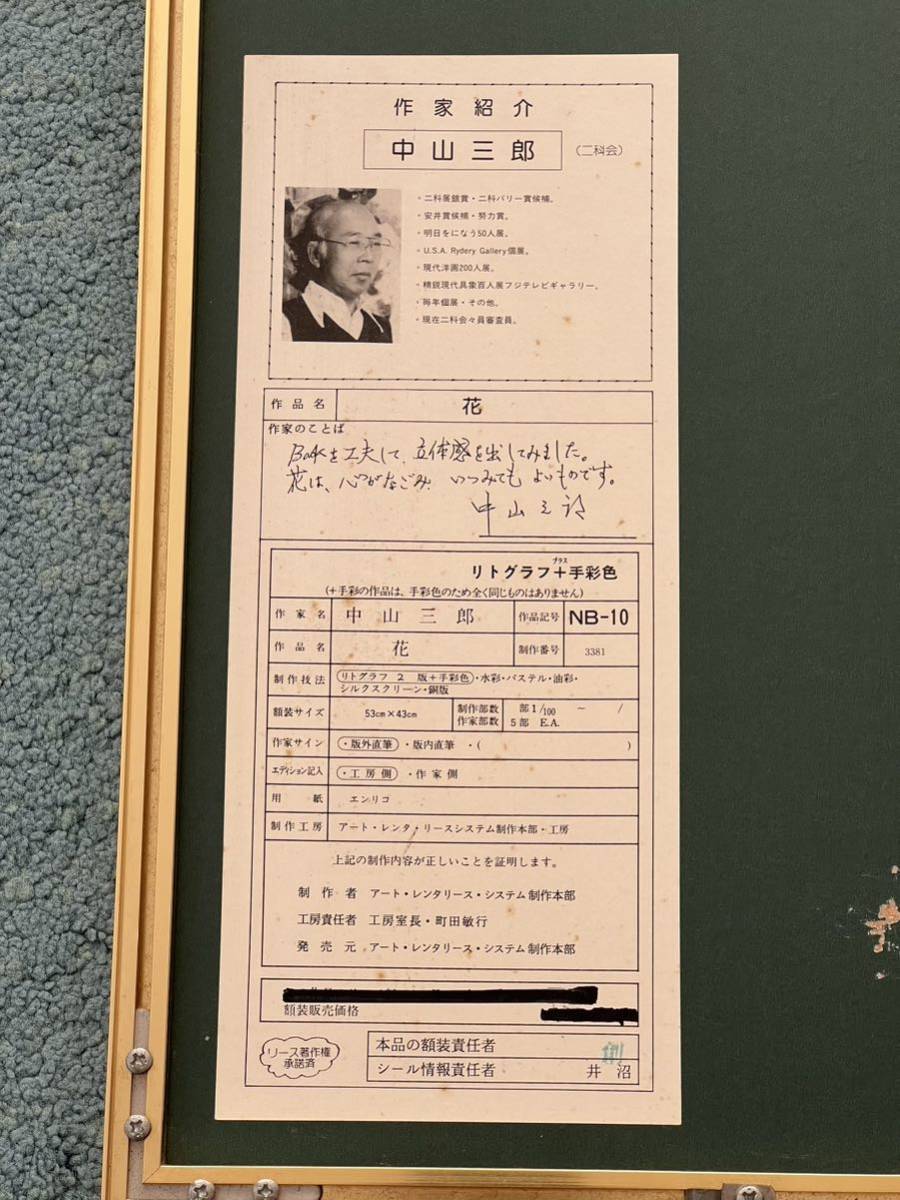 作家紹介
中山三郎 (二科会)
・二科展銀賞・二科パリー賞候補。
・安井賞候補・努力賞。
・明日をになう50人展。
・U.S.A. Rydery Gallery個展。
・現代洋画200人展。
・精鋭現代具象百人展フジテレビギャラリー。
・毎年個展・その他。
・現在二科会々員審査員。
作品名 花
作家のことば
Backを工夫して、立体感を出してみました。
花は、心がなごみ、いつみても よいものです。
中山三郎
リトグラフ+手彩色
プラス
(+手彩の作品は、手彩色のため全く同じものはありません)
作家名 中山三郎 作品記号 NB-10
作品名 花 制作番号 3381
制作技法 リトグラフ 2 版+手彩色・水彩・パステル・油彩・
シルクスクリーン・銅版
額装サイズ 53cm×43cm 制作部数 部1/100 ~ /
作家部数 5部 E.A.
作家サイン ・版外直筆 ・版内直筆 ・( )
エディション記入 ・工房側 ・作家側
用紙 エンリコ
制作工房 アート・レンタ・リースシステム制作本部・工房
上記の制作内容が正しいことを証明します。
制作者 アート・レンタリース・システム制作本部
工房責任者 工房室長・町田敏行
発売元 アート・レンタリース・システム制作本部
額装販売価格
リース著作権
承諾済
本品の額装責任者
シール情報責任者 井沼